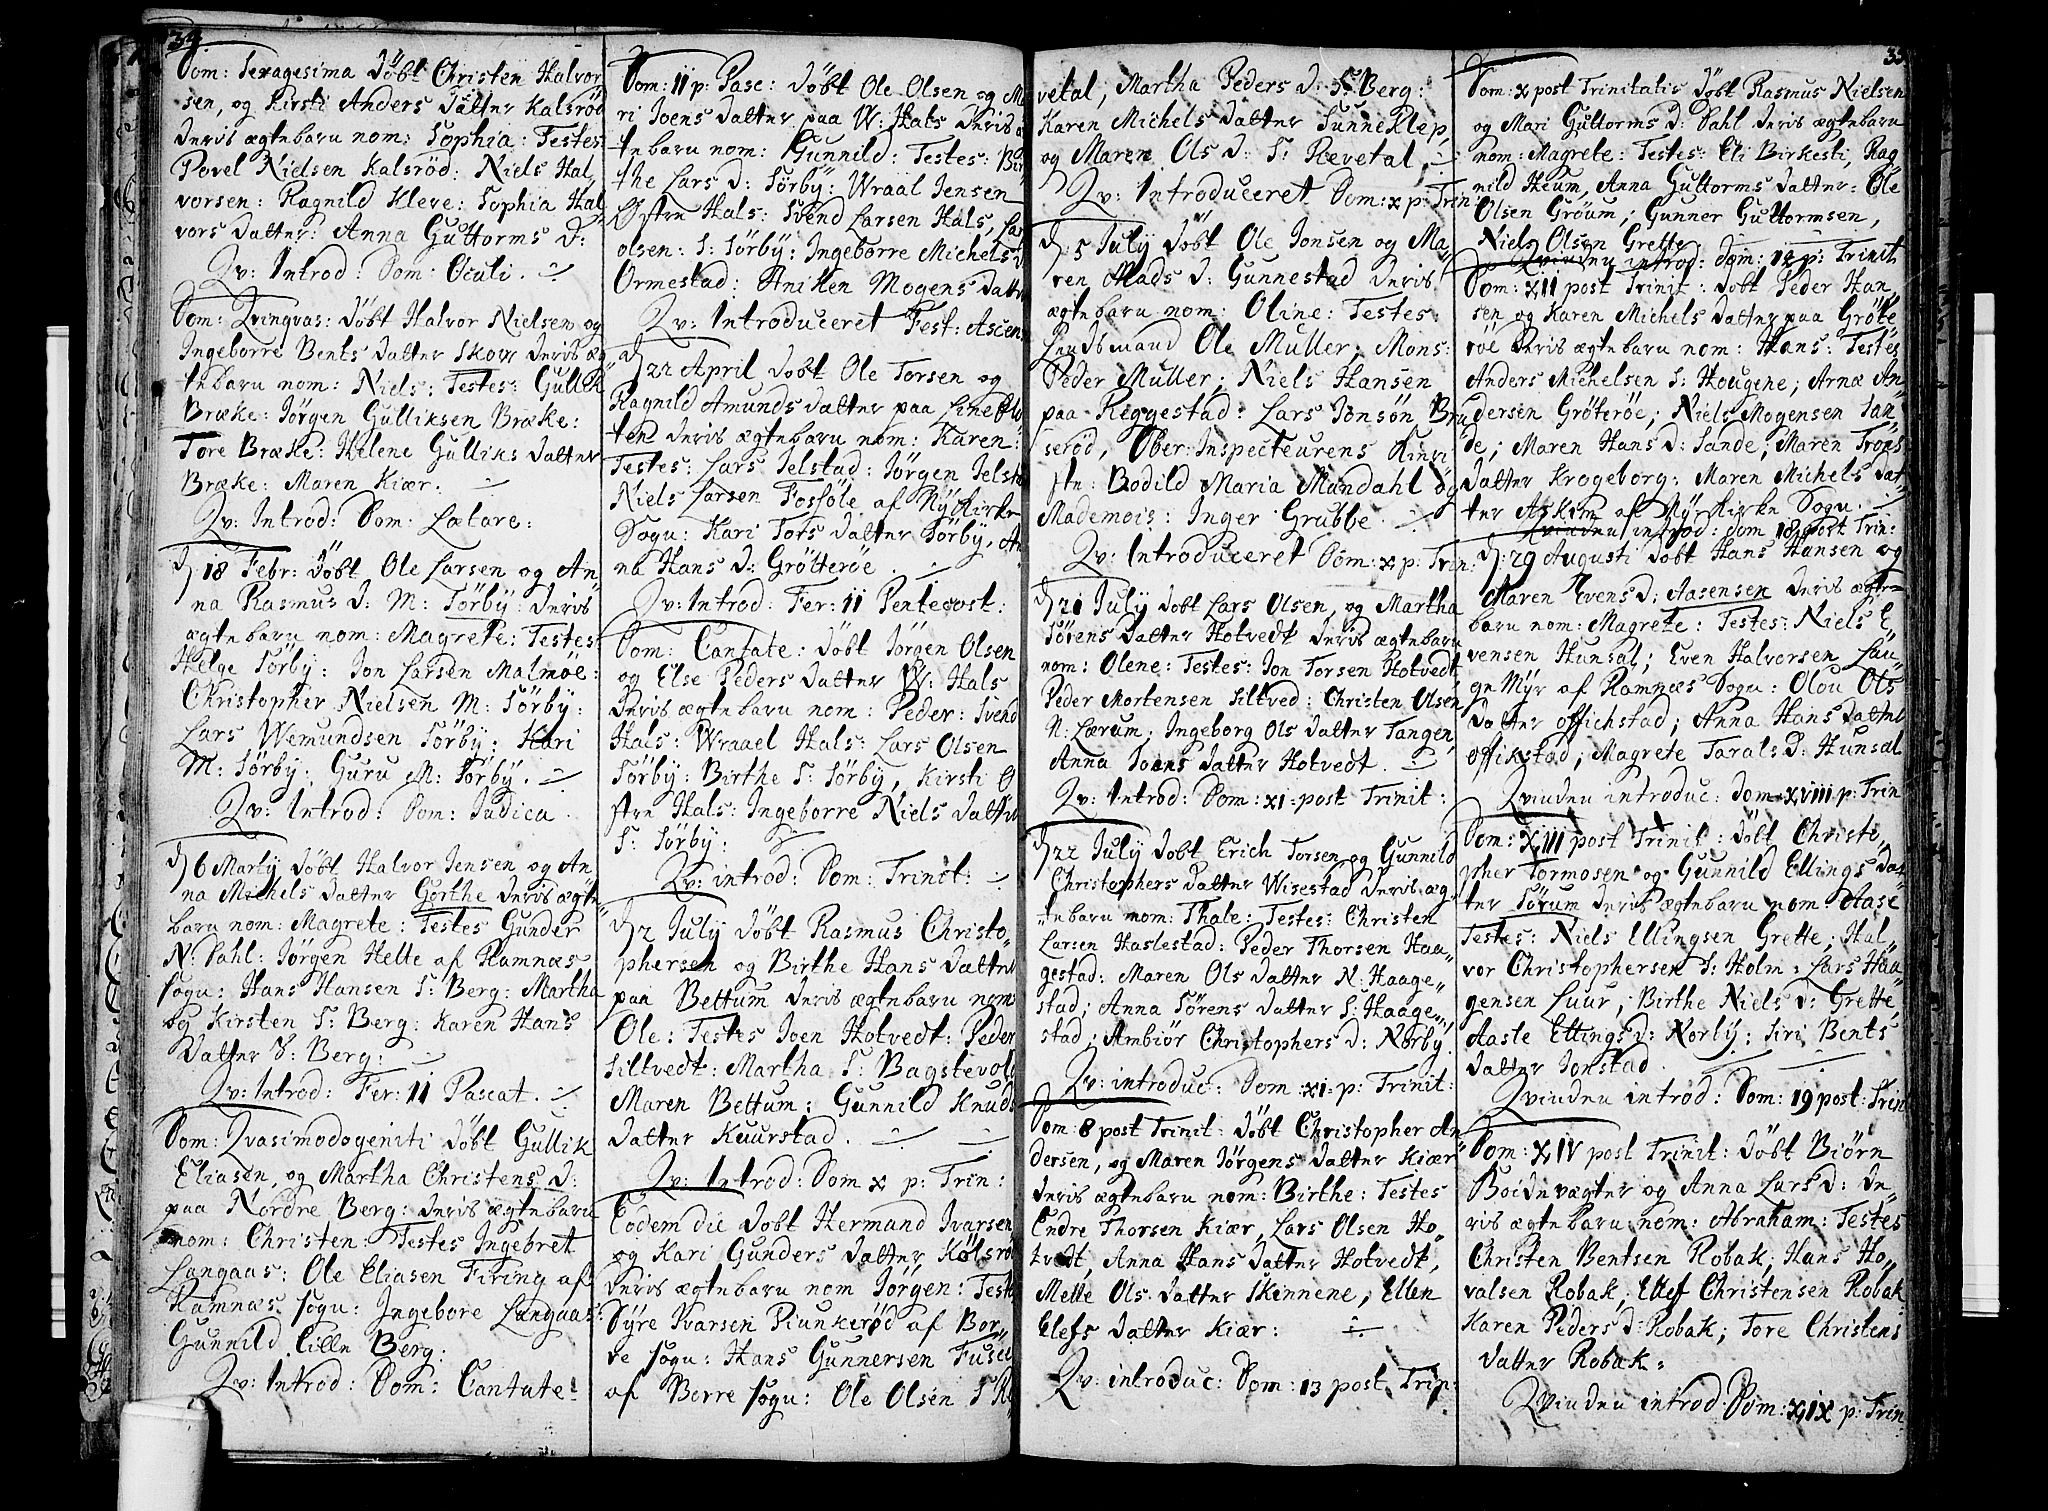 34.
Dom: Sexagesima Döbt Christen Halvor
sen, og Kirsti Anders Datter Kalsröd
deris ægtebarn nom: Sophia: Testes
Povel Nielsen Kalsröd: Niels Hal,
vorsen: Ragnild Klere: Sophia Hal
vors datter: Anna Guttorms D:
Qv: Introd: Dom: Oculi.
Dom: Qvinqvas: Döbt Halvor Nielsen og
Ingeborre Bents datter Skow deris æg
tebarn nom: Niels: Testes: Gullik
Bræke: Jörgen Gulliksen Bræke:
Tore Bræke: Helene Gulliks datter
Bræke: Maren Kiær.
Qv: Introd: Dom: Lætare:
d 18 Febr: Döbt Ole Larsen og An
na Rasmus d: M: Törby: deris
ægtebarn nom: Magrete: Testes:
Helge Törby: Jon Larsen Malmöe:
Christopher Nielsen M: Törby:
Lars Wemundsen Törby: Kari
M: Sörby: Guru M: Törby.
Qv: Introd: Dom: Judica.
d 6 Martij döbt Halvor Jensen og An
na Michels datter Görthe deris ægte
barn nom: Magrete: Testes Gunder
N: Dahl: Jörgen Helle af Ramnæs
sogn: Hans Hansen S: Berg: Martha
og Kirsten S: Berg: Karen Hans
datter S: Berg:
Qv: Introd: Fer: 11 Pascat.
Dom: Qvasimodogeniti Döbt Gullik
Eliasen, og Martha Christens D:
paa Nordre Berg: deris ægtebarn
nom: Christen: Testes Ingebret
Langaas: Ole Eliasen Firing af
Ramnæs sogn: Ingebore Langaas:
Gunnild Lille Berg:
Qv: Introd: Dom: Cantate:
Dom: 11 p: Pasc: döbt Ole Olsen og Ma
ri Joens datter paa W: Hals deris æ
tebarn nom: Gunnild: Testes: Bir
the Lars d: Sörby: Wraal Jensen
Østre Hals: Svend Larsen Hals, Lar
olsen: S: Sörby: Ingeborre Michels d
Ormestad: Aniken Mogens datter
Qv: Introduceret Fest: Ascens
d 22 April döbt Ole Torsen og
Ragnild Amunds datter paa Linefla
ten deris ægtebarn nom: Karen:
Testes: Lars Jelstad: Jörgen Jelsta
Niels Larsen Fossöle af Nÿ Kirke
Sogn: Kari Tors datter Sörby, An
na Hans D: Grötteröe.
Qv: Introd: Fer: 11 Pentecost:
Dom: Cantate: döbt Jörgen Olsen
og Else Peders datter W: Hals
deris ægtebarn nom: Peder: Svend
Hals: Wraael Hals: Lars Olsen
Sörby: Birthe S: Sörby, Kirsti Ø
stre Hals: Ingeborre Niels datter
S: Sörby:
Qv: introd: Dom: Trinit:
d 2 July döbt Rasmus Christo,
phersen og Birthe Hans datter
paa Bettum deris ægtebarn nom
Ole: Testes Joen Hotvedt: Peder
Siltvedt: Martha S: Bagstevold
Maren Bettum: Gunnild Knuds
datter Kuurstad.
Qv: Introd: Dom x p: Trin:
Eodem die döbt Hermand Ivarsen
og Kari Gunders datter Kölsrö
deris ægtebarn nom Jörgen: Testes
Syre Ivarsen Piunkeröd af Bor,
re sogn: Hans Gunnersen Fuse
af Borre sogn: Ole Olsen S Ræ
vetal, Martha Peders D: S: Berg:
Karen Michels datter Sunneklep,
og Maren Ols D: S: Rævetal.
Qv: Introduceret Dom: x p: Trin:
d: 5 July döbt Ole Jonsen og Ma,
ren Mads D: Gunnestad deris
ægtebarn nom: Oline: Testes:
Lendsmand Ole Müller, Mons:
Peder Müller; Niels Hansen
paa Reggestad: Lars Jonsön Bru
seröd, Ober-Inspecteurens
ste: Bodild Maria Mundahl og
Mademois: Inger Grubbe.
Qv: Introduceret Dom: x p: Trin:
d 21 July döbt Lars Olsen, og Martha
Sörens datter Hotvedt deris ægtebarn
nom: Olene: Testes: Jon Torsen Hotvedt
Peder Mortensen Siltved: Christen Olsen
N: Lærum, Ingeborg Ols datter Tangen,
Anna Joens datter Hotvedt.
Qv: Introd: Dom: xi: post Trinit:
d 22 July döbt Erich Torsen og Gunnild
Christophers datter Wisestad deris æg,
tebarn nom: Thale: Testes: Christen
Larsen Haslestad: Peder Thorsen Haa,
gestad: Maren Ols datter N: Haage,
stad; Anna Sörens datter S: Haage,
stad; Ambiör Christophers d: Nörby.
Qv: introduc: Dom xi: p: Trinit:
Dom: 8 post Trinit: döbt Christopher An
dersen, og Maren Jörgens datter Kiær
deris ægtebarn nom: Birthe: Testes
Endre Thorsen Kiær, Lars Olsen Ho,
tvedt, Anna Hans datter Hotvedt,
Mette Ols datter Skinnene, Ellen
Elefs datter Kiær:
Qv: introduc: Dom: 13 post Trin:
35
Dom: x post Trinitatis döbt Rasmus Nielsen
og Mari Guttorms D: Dahl deris ægtebarn
nom: Magrete: Testes: Eli Birkesti, Rag
nild Heum, Anna Guttorms datter: Ole
Olsen Gröum; Gunner Guttormsen,
Niels Olsen Grette
Qvinden introd: dom: 18 p: Trinit
Dom: XII post Trinit: döbt Peder Han,
sen og Karen Michels datter paa Gröte
röe deris ægtebarn nom: Hans: Testes
Anders Michelsen S: Hougene; Arnæ An
dersen Gröteröe; Niels Mogensen San,
de; Maren Hans D: Sande, Maren Trons
datter Krogeborg: Maren Michels dat,
ter Askim af Nÿkirke Sogn.
Qvinden introd: dom 18 post Trin:
d: 29 Augusti döbt Hans Hansen og
Maren Evens D: Aasensen deris ægte
barn nom: Magrete: Testes: Niels E
vensen Hunsal; Even Halvorsen Lau,
ge Mÿr af Ramnæs Sogn: Olou Ols
datter offichstad; Anna Hans datter
offikstad; Magrete Tarals D: Hunsal
Qvinden introduc: Dom XVIII p: Trin
Dom: XIII post Trinit: döbt Christo,
pher Tormosen og Gunnild Ellings dat
ter Sörum deris ægtebarn nom Aase
Testes: Niels Ellingsen Grette; Hal,
vor Christophersen S: Holm: Lars Haa
gensen Luur; Birthe Niels D: Grette,
Aaste Ellings d: Norly: Siri Bents
datter Jonstad.
Qvinden introd: Dom: 19 post: Trin
Dom: XIV post Trinit: döbt Biörn
Boidevægter og Anna Lars D: de,
ris ægtebarn nom: Abraham: Testes
Christen Bentsen Robak; Hans Ho,
valsen Robak; Ellef Christensen Robak
Karen Peders D: Robak; Tore Christens
datter Robak:
Qvinden introd: Dom: XIX p: Trin